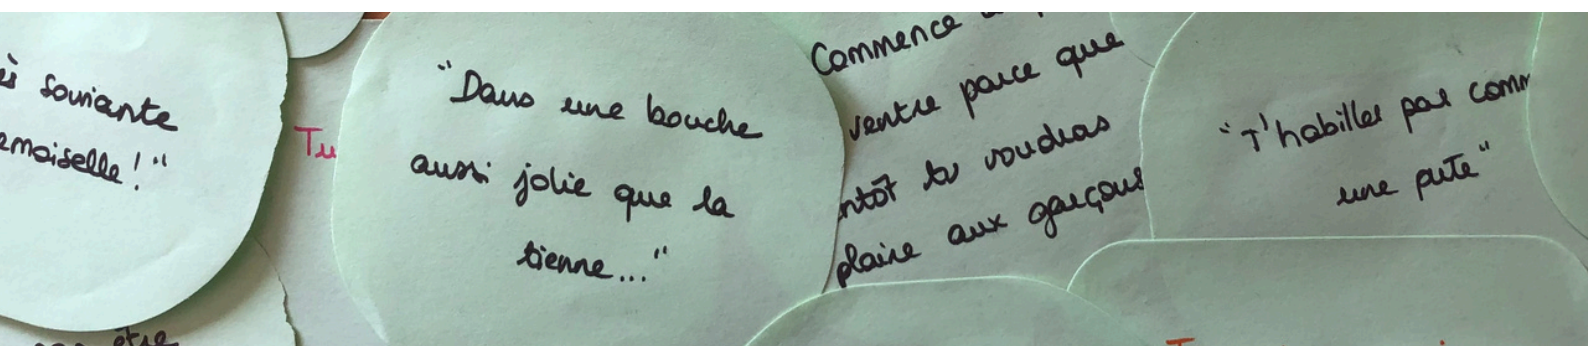 souriante
!"
Tu
"Dans une bouche
aussi jolie que la
tienne..."
Commence
ventre parce que
tu voudras
plaire aux garçons
"T'habilles pas
une pute"
être